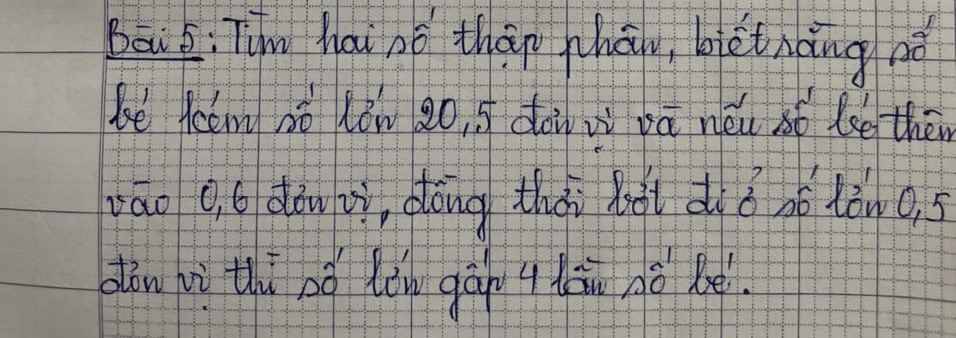 Bài 5: Tìm hai số thập phân, biết rằng số
bé kém số lớn 20,5 đơn vị và nếu số bé thêm
vào 0,6 đơn vị, đồng thời bớt đi ở số lớn 0,5
đơn vị thì số lớn gấp 4 lần số bé.